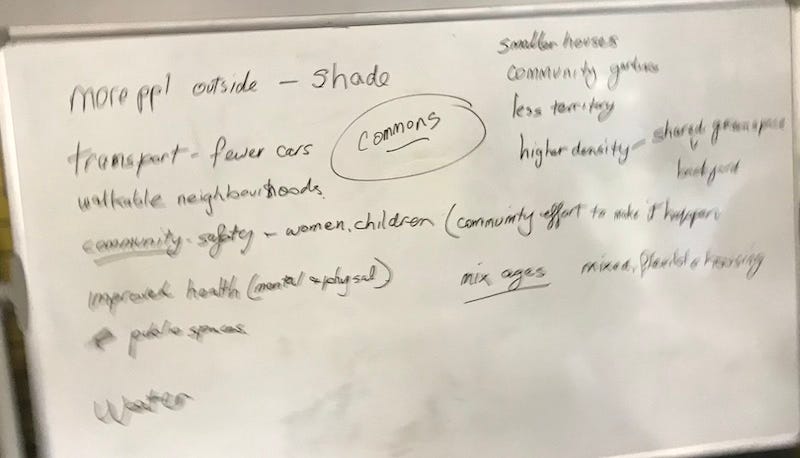 more ppl outside - shade
transport - fewer cars
walkable neighbourhoods
community. safety - women, children (community effort to make it happen
improved health (mental & physal)
public spaces
Water
commons
smaller houses
community gardens
less territory
higher density - shared greenspace
backyard
mix ages
mixed, housing